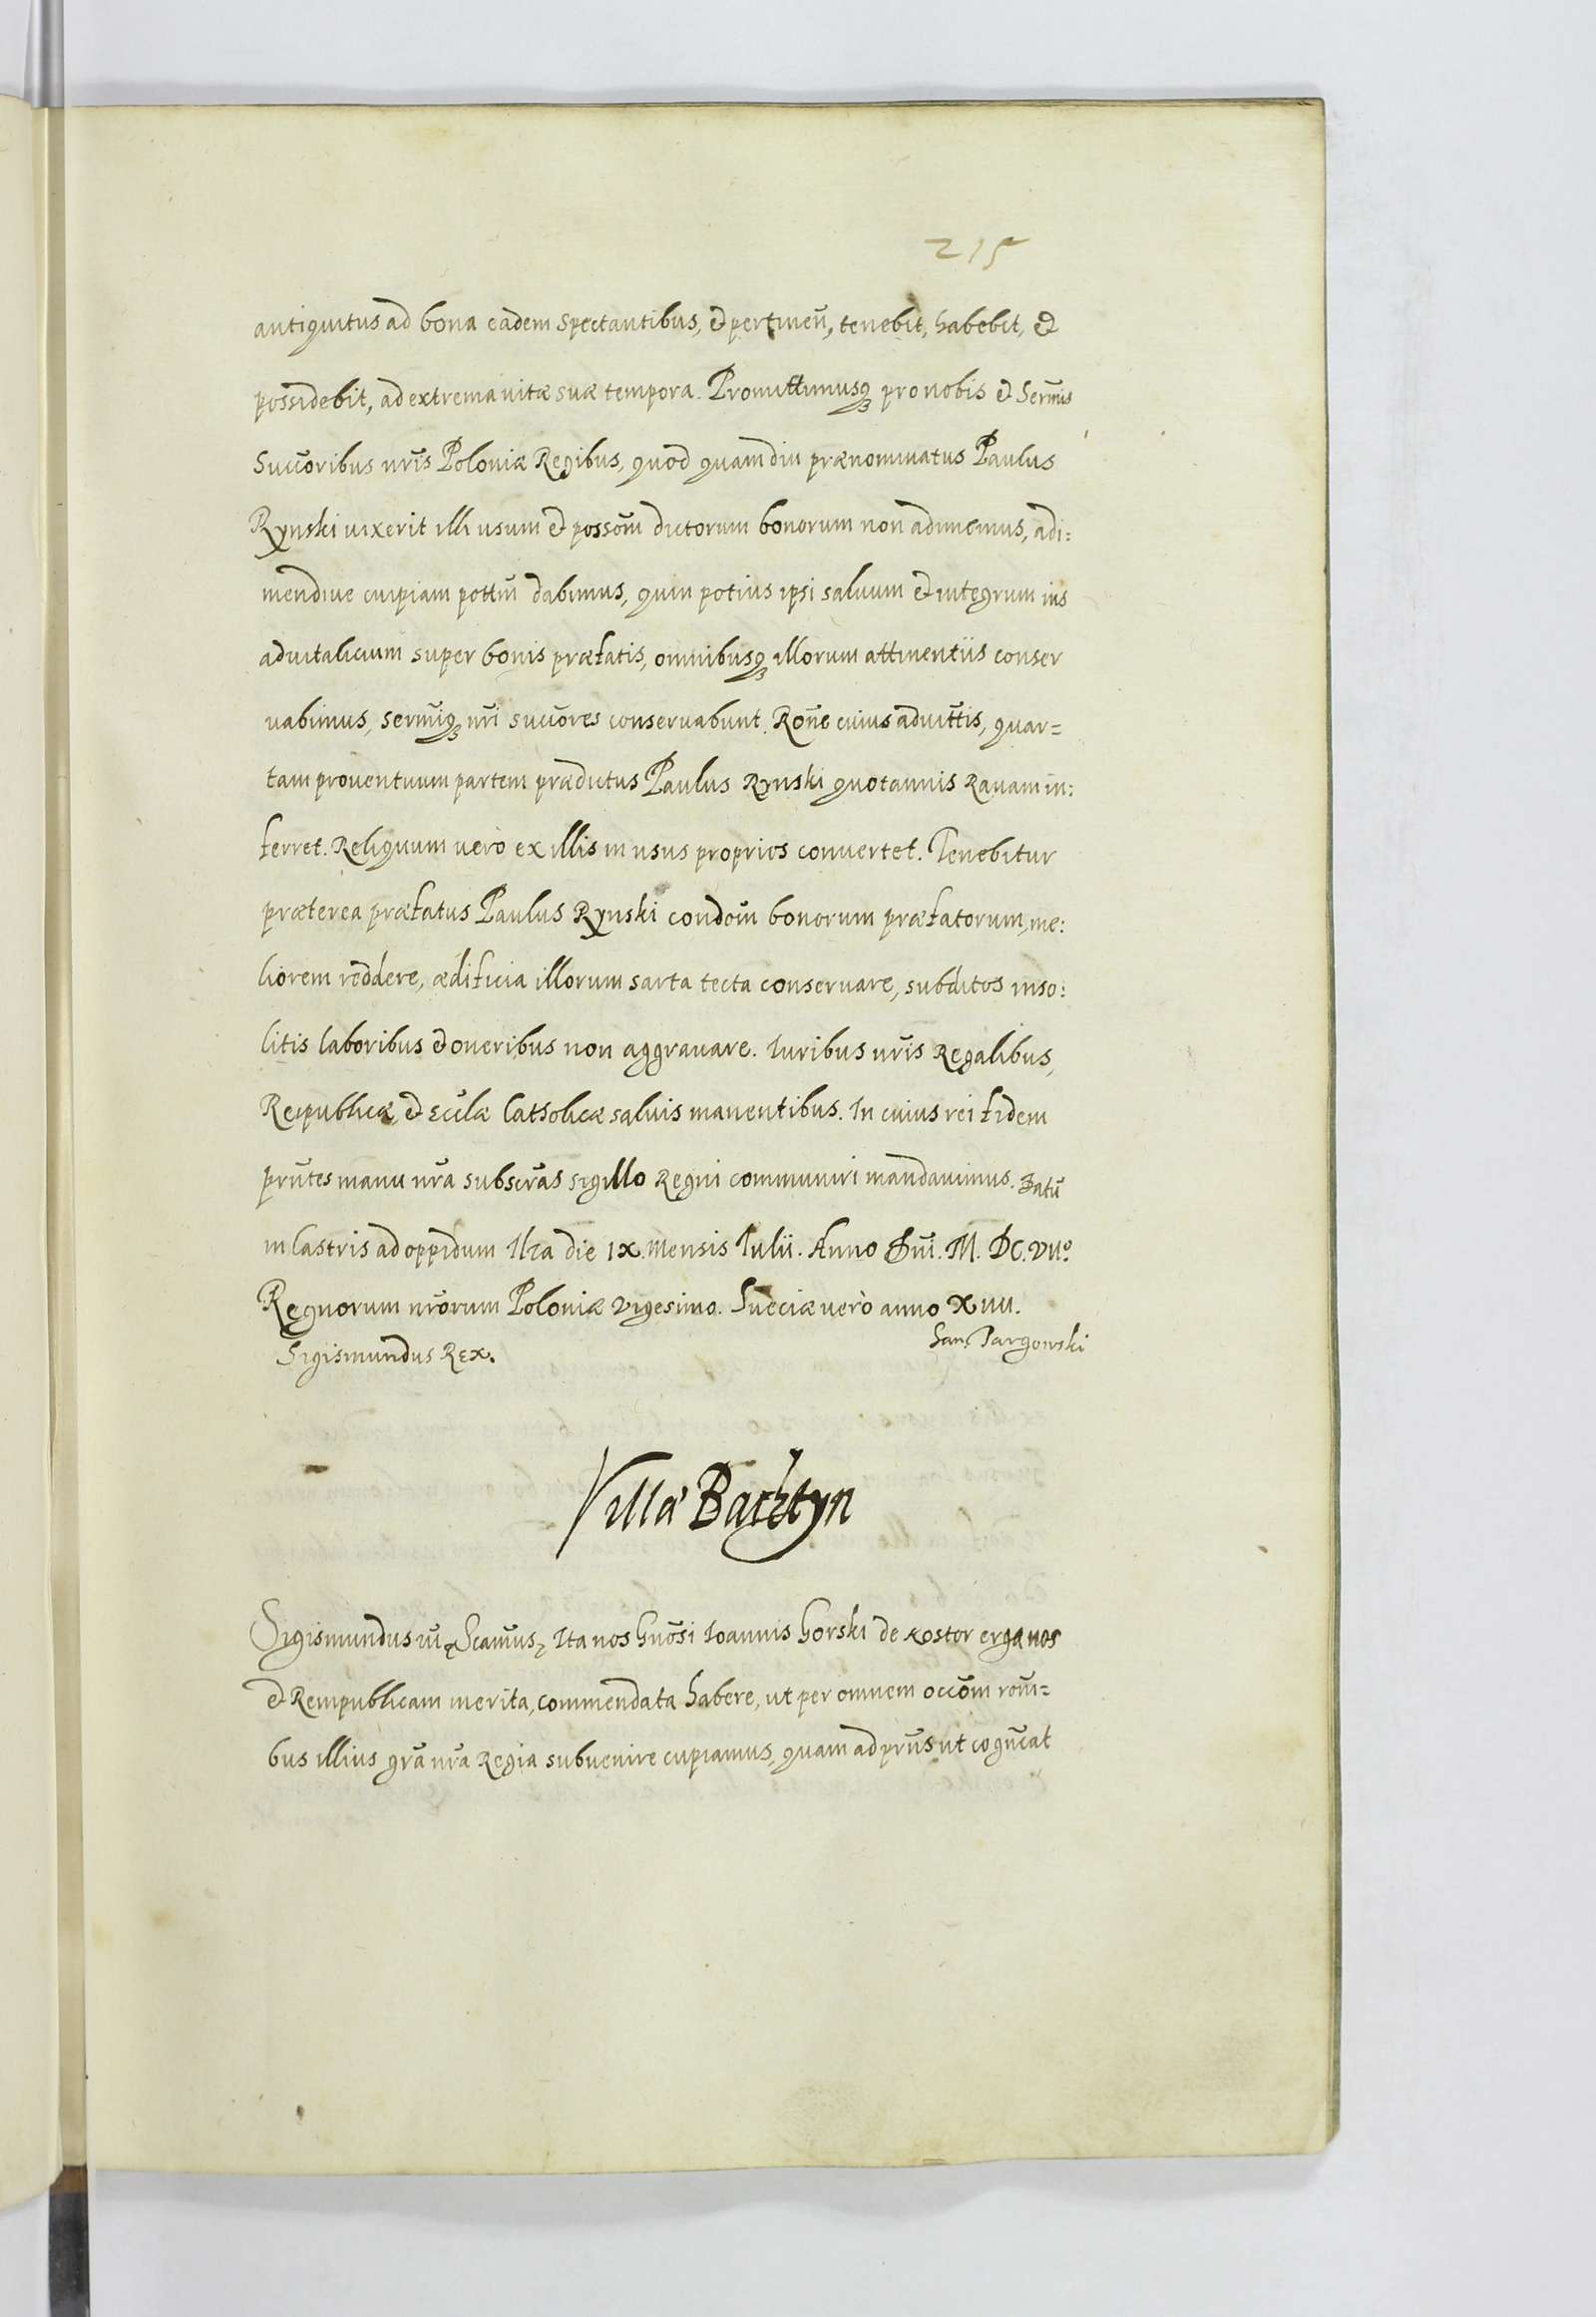 215
antiquitus ad bona eadem spectantibus, & pertineñ, tenebit, habebit, &
possidebit, ad extrema vitæ suæ tempora. Promittimusq₃ pro nobis & Serm̃is
Succ̃oribus nr̃is Poloniæ Regibus, quod quamdiu prænominatus Paulus
Rynski vixerit illi usum & posso͠m dictorum bonorum non adimemus, adi=
mendive cuipiam pott̃m dabimus, quin potius ipsi salvum & integrum ius
advitalicium super bonis præfatis, omnibusq₃ illorum attinentiis conser
vabimus, serm̃iq₃ nr̃i succ̃ores conservabunt. Rõne cuius advitt̃is, quar=
tam proventuum partem prædictus Paulus Rynski quotannis Ravam in:
ferret. Reliquum verò ex illis in usus proprios convertet. Tenebitur
præterea præfatus Paulus Rynski condõm bonorum præfatorum, me:
liorem reddere, ædificia illorum sarta tecta conservare, subditos inso:
litis laboribus & oneribus non aggravare. Iuribus nr̃is Regalibus,
Reipublicæ, & Eccl̃æ Catholicæ salvis manentibus. In cuius rei fidem
prñtes manu nr̃a subscr̃as sigillo Regni communiri mandavimus. Datũ
in Castris ad oppidum Ilza die IX. Mensis Iulii. Anno Dñi. M. DC. VIIº.
Regnorum nr̃orum Poloniæ vigesimo. Sueciæ verò anno XIIII.
Sigismundus Rex.
San. Targowski
Villa Bachtyn
Sigismundus III. Scam̃us, Ita nos Gnõsi Ioannis Gorski de Kostor erga nos
& Rempublicam merita, commendata habere, ut per omnem occõm rõni=
bus illius gr̃a nr̃a Regia subvenire cupiamus, quam ad prñs ut cognc̃at